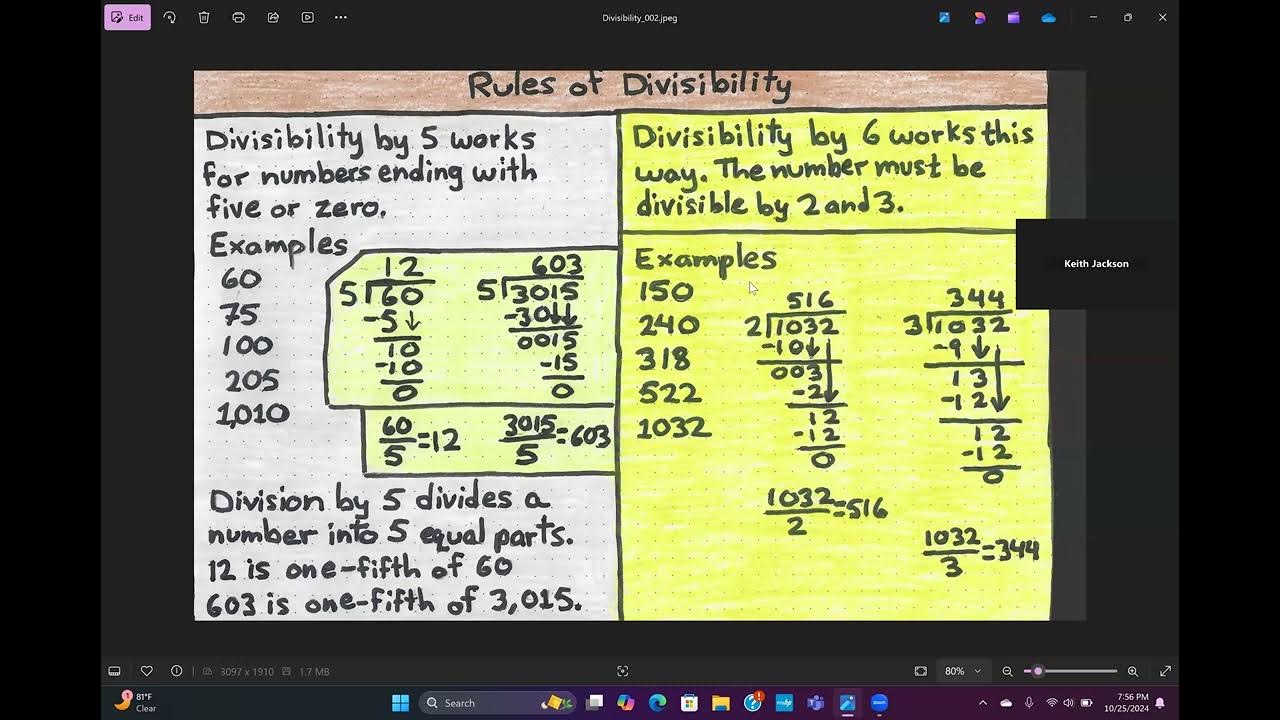 Edit
Divisibility_002.jpeg
Rules of Divisibility
Divisibility by 5 works
for numbers ending with
five or zero.
Examples
60
75
100
205
1,010
12
5 60
-5
10
-10
0
603
5 3015
-30
0015
-15
0
60/5=12
3015/5=603
Division by 5 divides a
number into 5 equal parts.
12 is one-fifth of 60
603 is one-fifth of 3,015.
Divisibility by 6 works this
way. The number must be
divisible by 2 and 3.
Examples
150
240
318
522
1032
516
2 1032
-10
003
-2
12
-12
0
1032/2=516
344
3 1032
-9
13
-12
12
-12
0
1032/3=344
Keith Jackson
3097 x 1910
1.7 MB
80%
1
81°F
Clear
Search
7:56 PM
10/25/2024